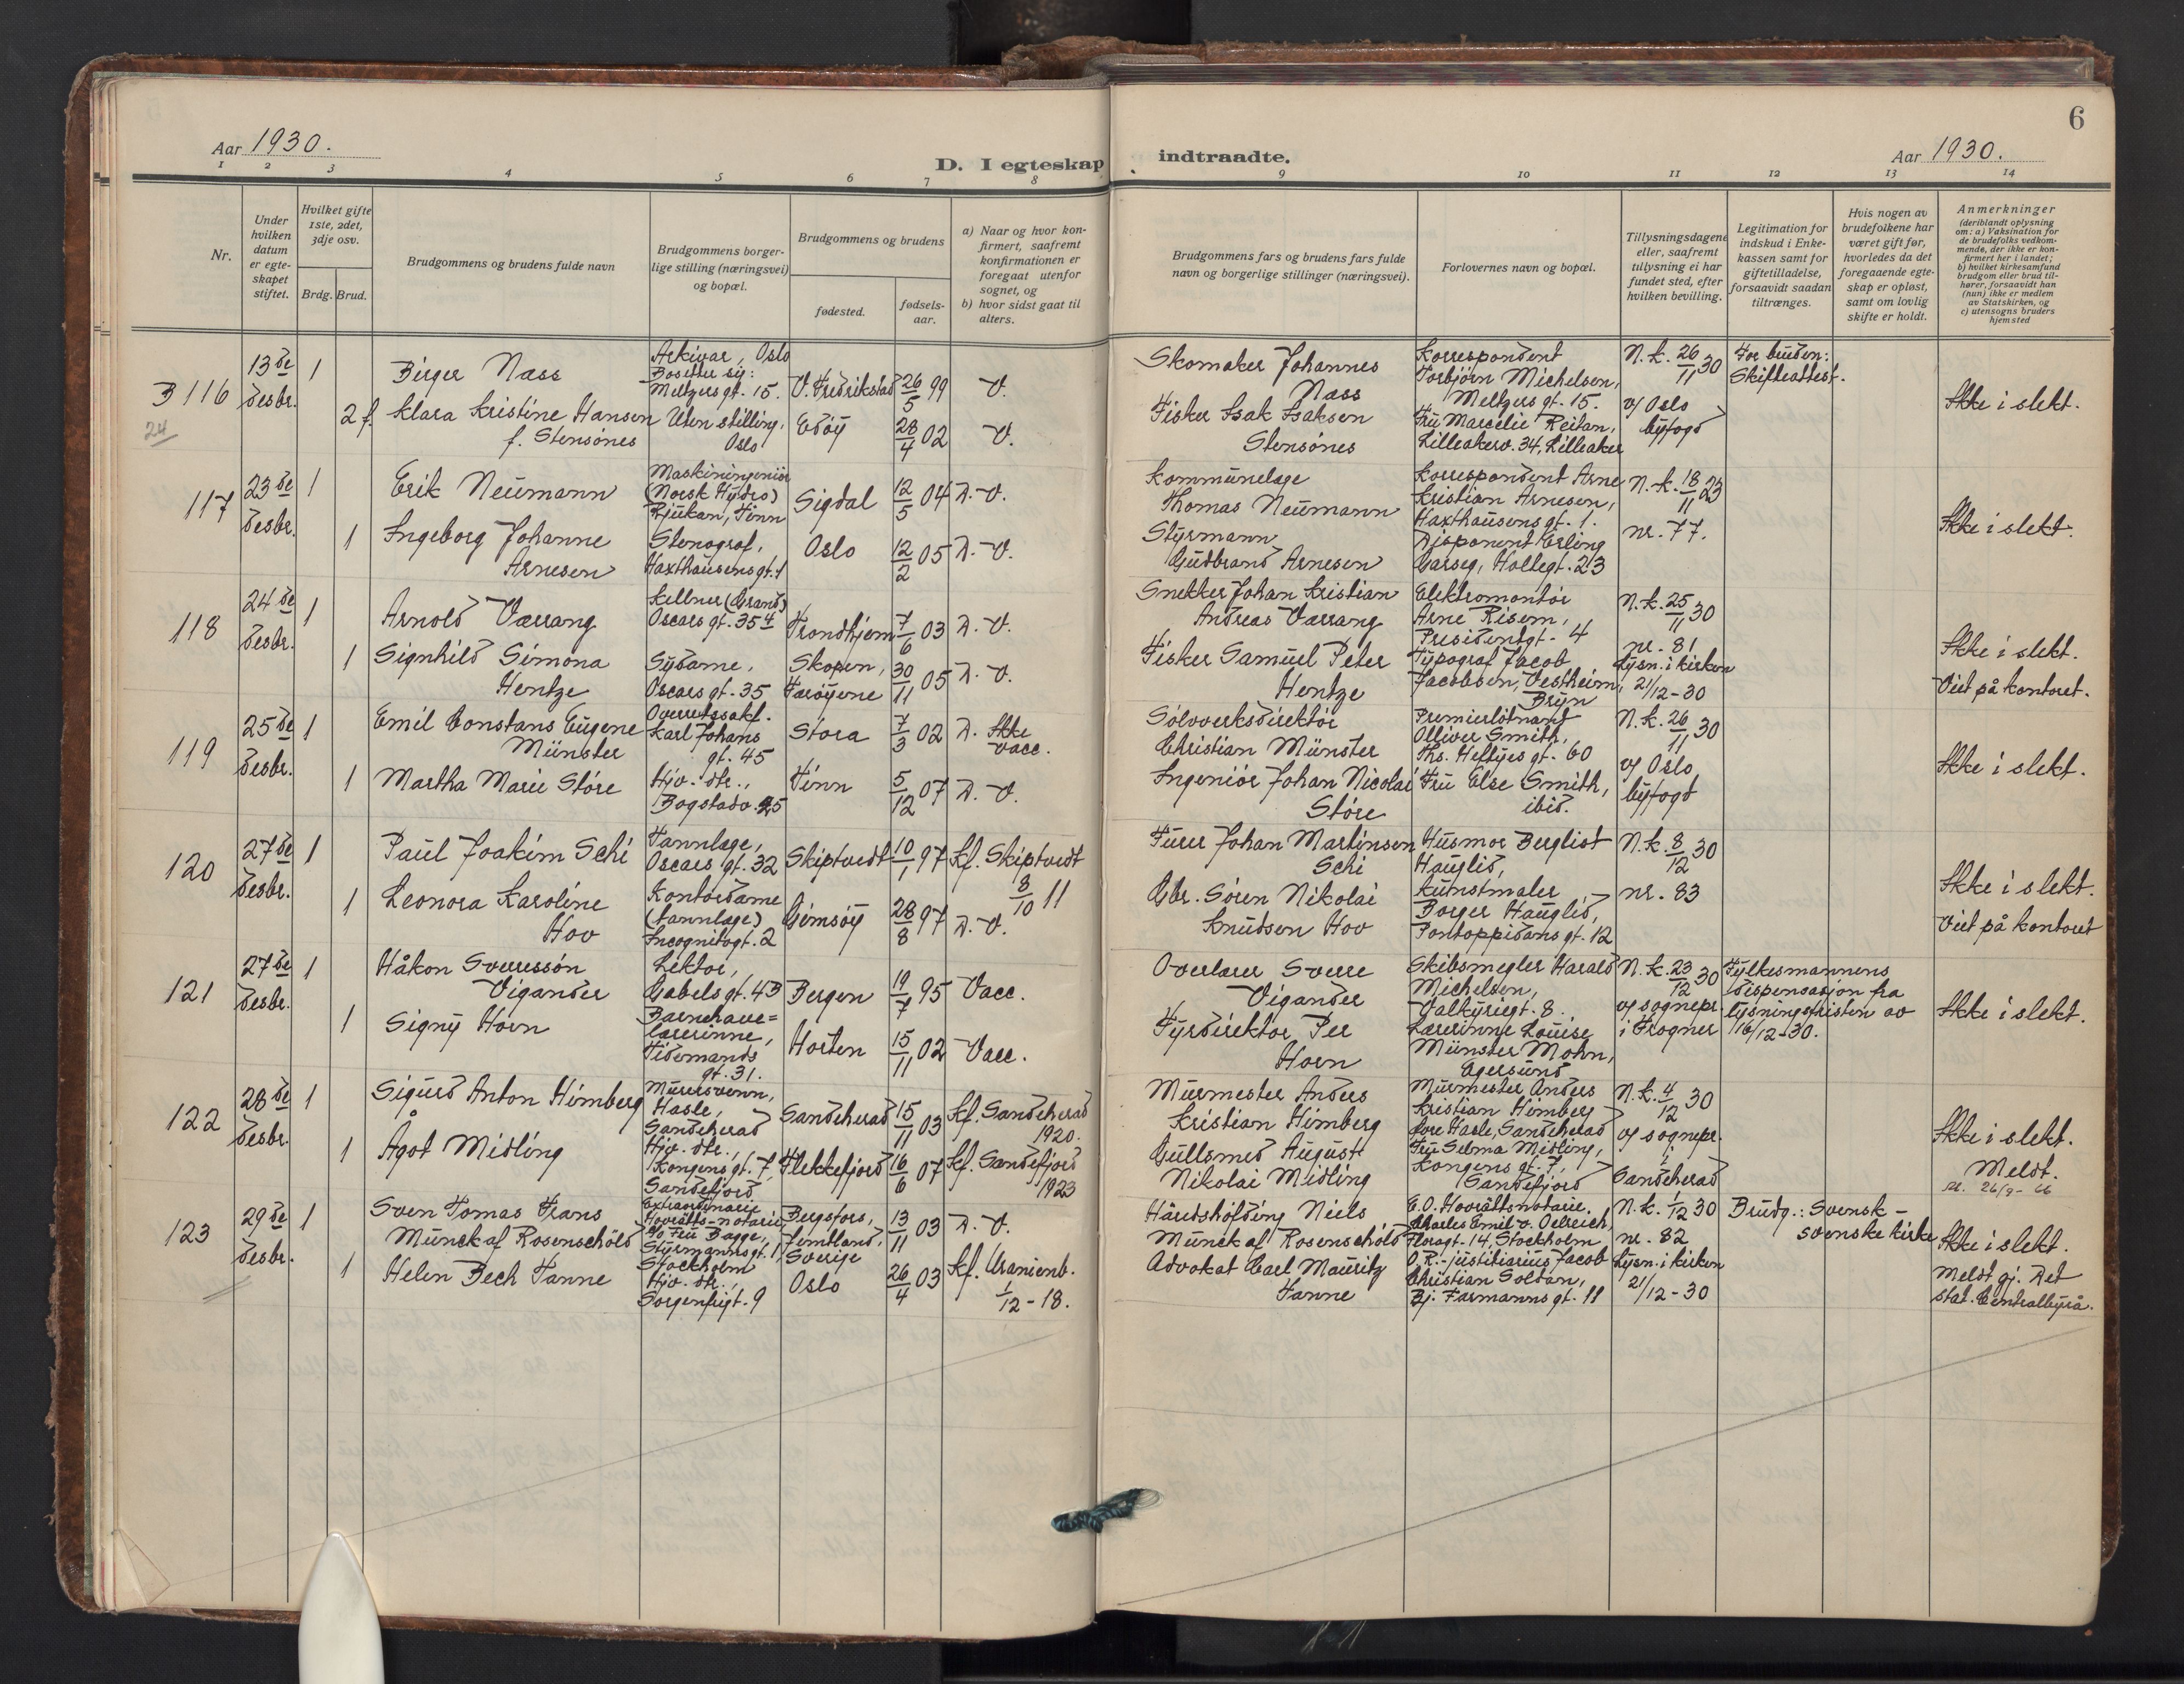 Aar 1930.
D. I egteskap indtraadte.
Aar 1930.
6
1 2 3 4 5 6 7 8 9 10 11 12 13 14
Nr.
Under hvilken datum er egteskapet stiftet.
Hvilket gifte 1ste, 2det, 3dje osv.
Brdg. Brud.
Brudgommens og brudens fulde navn
Brudgommens borgerlige stilling (næringsvei) og bopæl.
Brudgommens og brudens
fødested.
fødselsaar.
a) Naar og hvor konfirmert, saafremt konfirmationen er foregaat utenfor sognet, og
b) hvor sidst gaat til alters.
Brudgommens fars og brudens fars fulde navn og borgerlige stillinger (næringsvei).
Forlovernes navn og bopæl.
Tillysningsdagene eller, saafremt tillysning ei har fundet sted, efter hvilken bevilling.
Legitimation for indskud i Enkekassen samt for giftetilladelse, forsaavidt saadan tiltrænges.
Hvis nogen av brudefolkene har været gift før, hvorledes da det foregaaende egteskap er opløst, samt om lovlig skifte er holdt.
Anmerkninger
(deriblandt oplysning om: a) Vaksination for de brudefolks vedkommende, der ikke er konfirmert her i landet;
b) hvilket kirkesamfund brudgom eller brud tilhører, forsaavidt han (hun) ikke er medlem av Statskirken, og
c) utensogns bruders hjemsted
B 116
24
13de desbr.
1
Birger Næss
Arkivar, Oslo
Bosetter sig:
Meltzers gt. 15.
V. Fredrikstad
26/5 99
V.
Skomaker Johannes
Næss
Korrespondent
Torbjörn Michelsen,
Meltzers gt. 15.
N.k. 26/11 30
v/ Oslo
byfogd
For bruden:
Skifteattest.
Ikke i slekt.
2 f.
Klara Kristine Hansen
f. Stensönes
Uten stilling,
Oslo
Edöy
28/4 02
V.
Fisker Isak Isaksen
Stensönes
Fru Marcelie Reitan,
Lilleakerv. 34, Lilleaker
117
23de desbr.
1
Erik Neumann
Maskiningeniör
(Norsk Hydro)
Rjukan, Tinn
Sigdal
12/5 04
D. V.
Kommunelæge
Thomas Neumann
Korrespondent Arne
Kristian Arnesen,
Haxthausens gt. 1.
N.k. 18/11 23
nr. 77.
Ikke i slekt.
1
Ingeborg Johanne
Arnesen
Stenograf,
Haxthausens gt. 1
Oslo
12/2 05
D. V.
Styrmann
Gudbrand Arnesen
Disponent Erling
Garseg, Hollegt. 23
118
24de desbr.
1
Arnold Værrang
Kellner (Grand)
Oscars gt. 35 4
Trondhjem
7/6 03
D. V.
Snekker Johan Kristian
Andreas Værrang
Elektromontör
Arne Risem,
Presidentgt. 4
N.k. 25/11 30
nr. 81
Lysn. i kirken
21/12-30
Ikke i slekt.
Viet på kontoret.
1
Signhild Simona
Hentze
Sydame,
Oscars gt. 35
Skopen,
Færöyene
30/11 05
D. V.
Fisker Samuel Peter
Hentze
Typograf Jacob
Jacobsen, Vestheim,
Bryn
119
25de desbr.
1
Emil Constans Eugene
Münster
Overretssakf.
Karl Johans
gt. 45
Stora
7/3 02
D. Ikke
vacc.
Sölvverksdirektör
Christian Münster
Premierlötnant
Olliver Smith,
Ths. Heftyes gt. 60
N.k. 26/11 30
v/ Oslo
byfogd
Ikke i slekt.
1
Martha Marie Störe
Hjv. dtr.,
Bogstadv. 25
Tinn
5/12 07
D. V.
Ingeniör Johan Nicolai
Störe
Fru Else Smith,
ibid.
120
27de desbr.
1
Paul Joakim Schi
Tannlæge,
Oscars gt. 32
Skiptvedt
10/1 97
Kf. Skiptvedt
8/10 11
Furer Johan Martinsen
Schi
Husmor Bergliot
Hauglid,
N.k. 8/12 30
nr. 83
Ikke i slekt.
Viet på kontoret
1
Leonora Karoline
Hov
Kontordame
(tannlæge)
Incognitogt. 2
Gimsöy
28/8 97
D. V.
Gbr. Sören Nikolai
Knudsen Hov
Kunstmaler
Borger Hauglid,
Pontoppidans gt. 12
121
27de desbr.
1
Håkon Sverressön
Vigander
Lektor,
Gabels gt. 43
Bergen
19/7 95
Vacc.
Overlærer Sverre
Vigander
Skibsmegler Harald
Michelsen,
Valkyriegt. 8.
N.k. 23/12 30
v/ sognepr.
i Frogner
Fylkesmannens
dispensasjon fra
lysningsfristen av
16/12-30.
Ikke i slekt.
1
Signy Horn
Barnehave=
lærerinne,
Tidemands
gt. 31.
Horten
15/11 02
Vacc.
Fyrdirektör Per
Horn
Lærerinne Louise
Münster Mohn,
Egersund
122
28de desbr.
1
Sigurd Anton Himberg
Murersvenn,
Hasle,
Sandeherad
Sandeherad
15/11 03
Kf. Sandeherad
1920.
Murmester Anders
Kristian Himberg
Murmester Anders
Kristian Himberg
övre Hasle, Sandeherad
N.k. 4/12 30
v/ sognepr.
i
Sandeherad
Ikke i slekt.
Meldt.
26/9-66
1
Ågot Midling
Hjv. dtr.,
Kongens gt. 7,
Sandefjord
Flekkefjord
16/6 07
Kf. Sandefjord
1923
Gullsmed August
Nikolai Midling
Fru Selma Midling,
Kongens gt. 7,
Sandefjord
123
29de desbr.
1
Sven Tomas Frans
Munck af Rosenschöld
Extraordinarie
Hovrätts-notarie,
c/o Fru Bagge,
Styrmannsgt. 1,
Stockholm
Bergsfors,
Jemtland,
Sverige
13/11 03
D. V.
Häradshöfding Niels
Munck af Rosenschöld
E.O. Hovrättsnotarie,
Charles Emil v. Oelreich,
Floragt. 14, Stockholm
N.k. 1/12 30
nr. 82
Lysn. i kirken
21/12-30
Brudg.: Svensk -
svenske kirke
Ikke i slekt.
Meldt gj. Det
stat. Centralbyrå.
1
Helen Bech Fanne
Hjv. dtr.,
Sorgenfrigt. 9
Oslo
26/4 03
Kf. Uranienb.
1/12-18.
Advokat Carl Mauritz
Fanne
O.R.-justitiarius Jacob
Christian Soldan,
Bj. Farmanns gt. 11